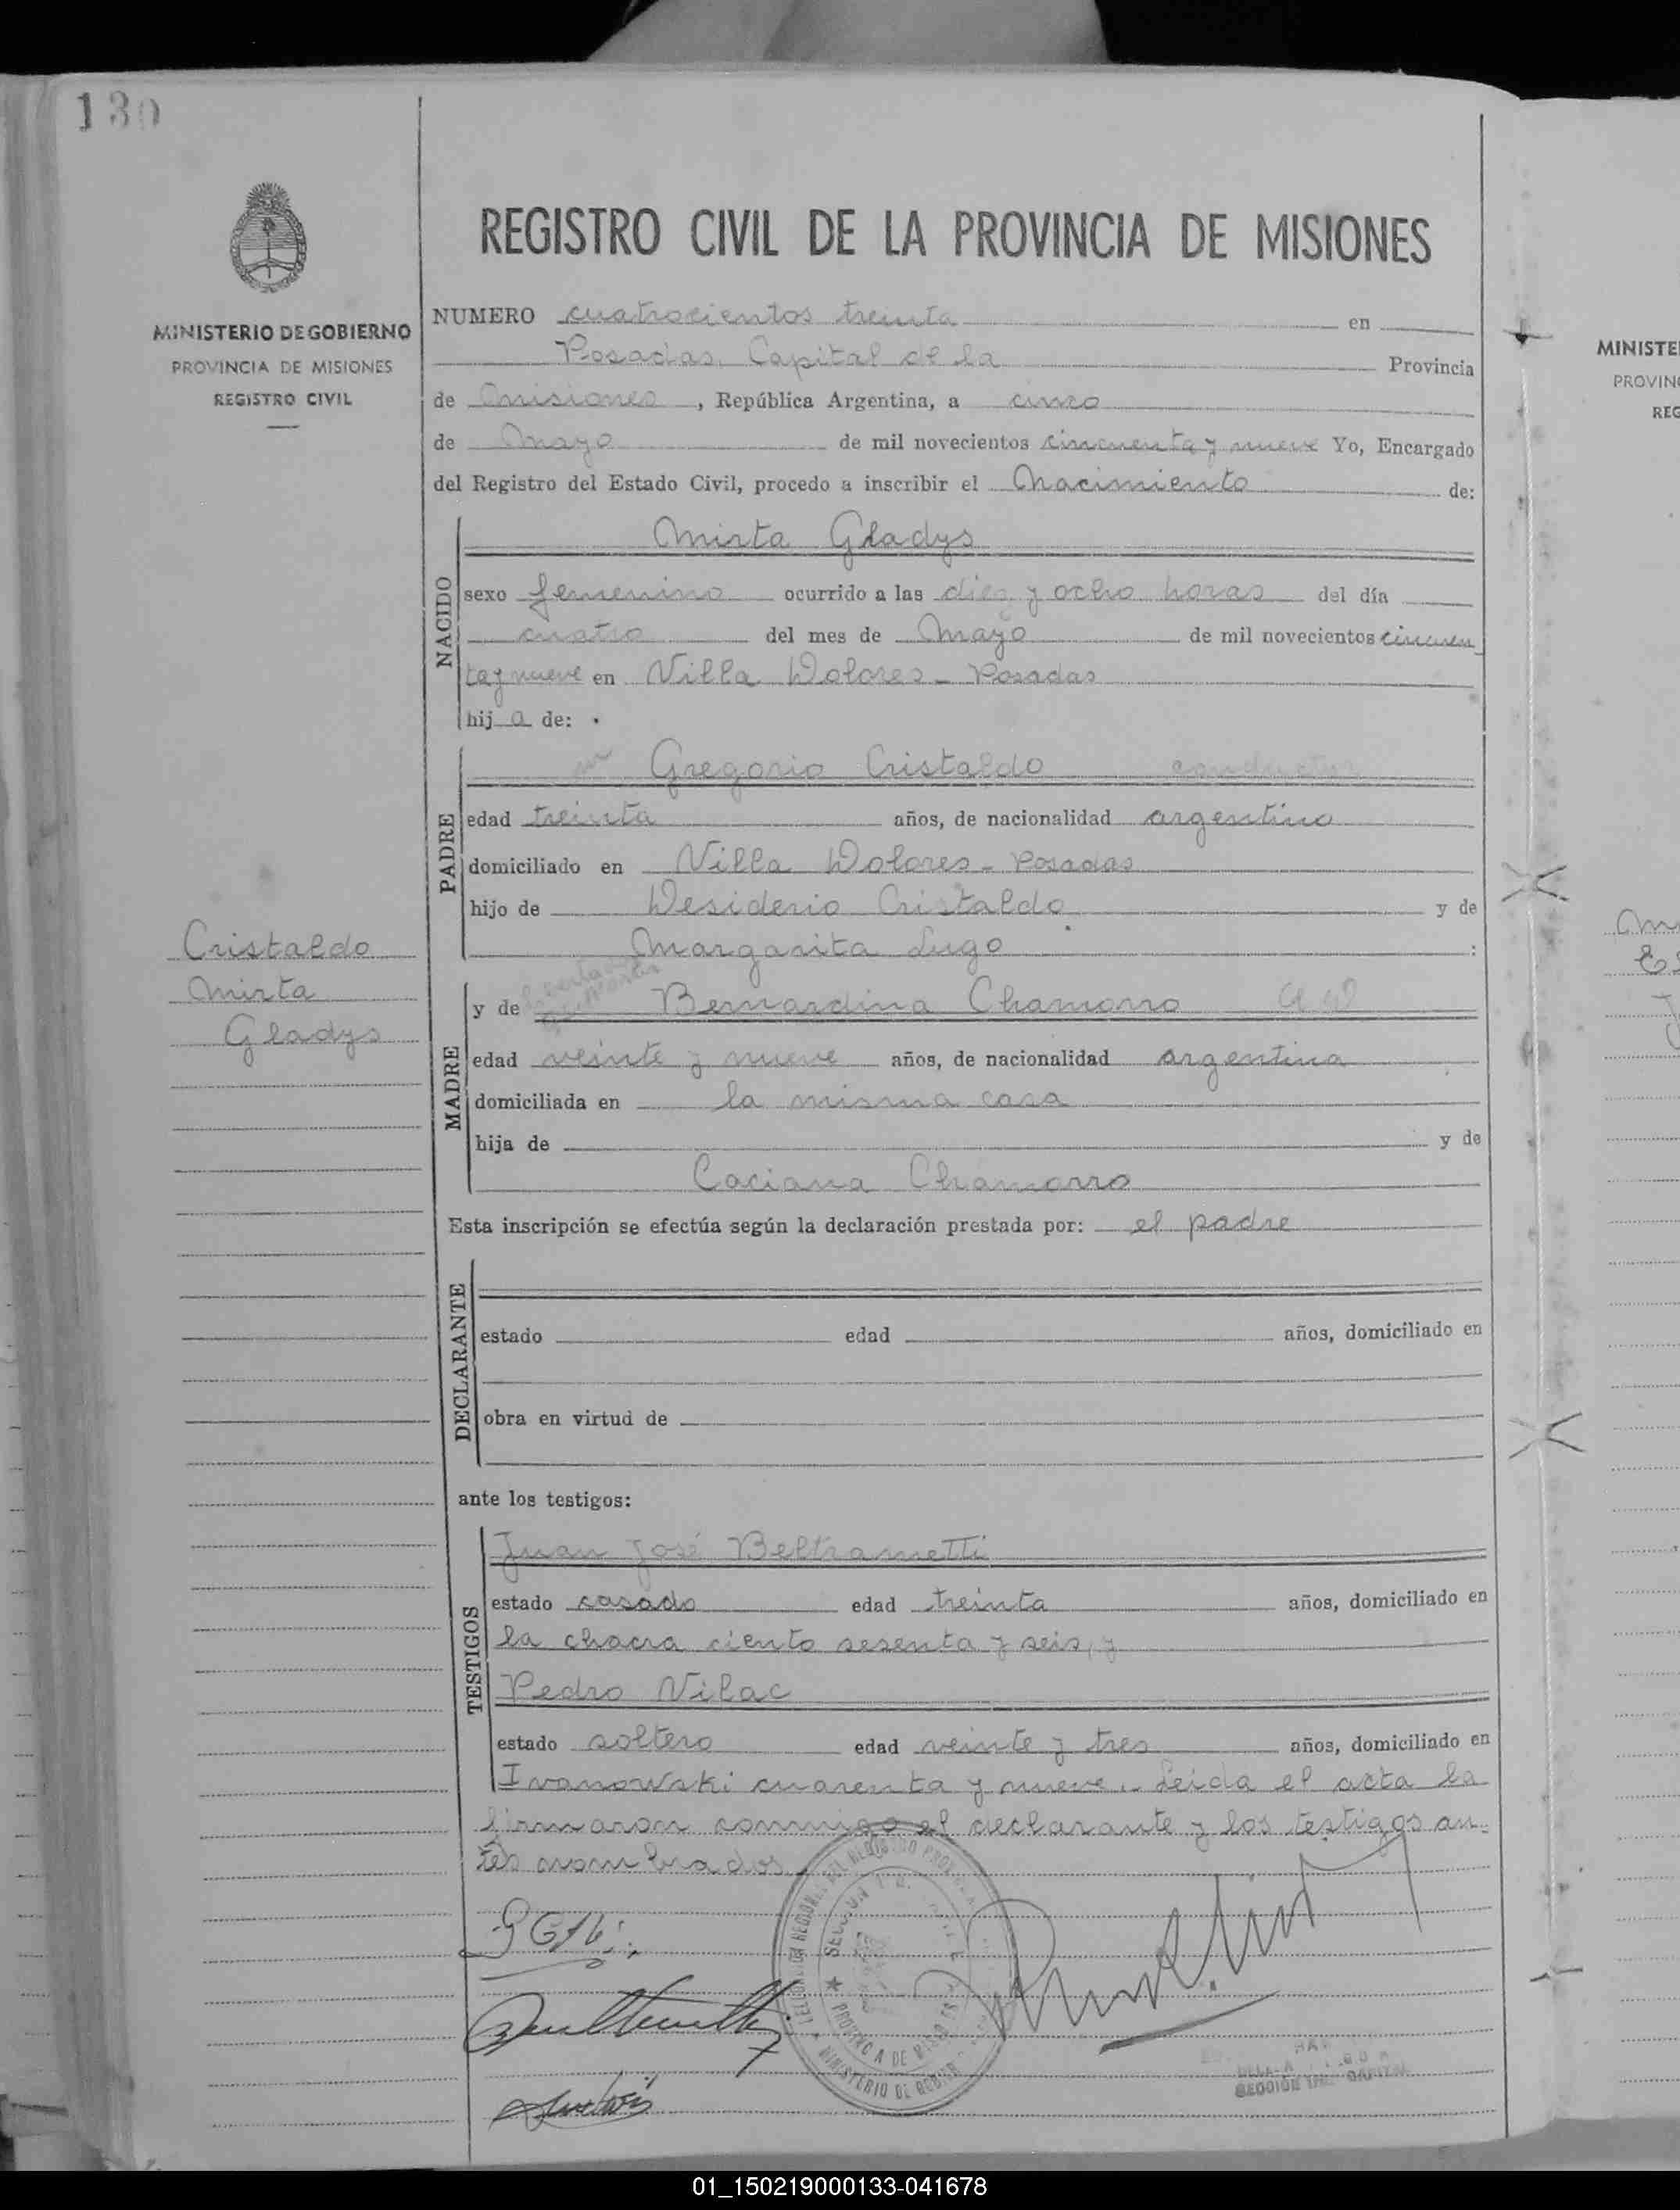 130
MINISTERIO DE GOBIERNO
PROVINCIA DE MISIONES
REGISTRO CIVIL
Cristaldo
Mirta
Gladys
REGISTRO CIVIL DE LA PROVINCIA DE MISIONES
NUMERO cuatrocientos treinta en
Posadas, Capital de la Provincia
de Misiones, República Argentina, a cinco
de Mayo de mil novecientos cincuenta y nueve Yo, Encargado
del Registro del Estado Civil, procedo a inscribir el Nacimiento de:
NACIDO
Mirta Gladys
sexo femenino ocurrido a las diez y ocho horas del día
cuatro del mes de Mayo de mil novecientos cincuen
ta y nueve en Villa Dolores - Posadas
hij a de:
PADRE
Gregorio Cristaldo conductor
edad treinta años, de nacionalidad argentino
domiciliado en Villa Dolores - Posadas
hijo de Desiderio Cristaldo y de
Margarita Lugo :
MADRE
y de Bernardina Chamorro
edad veinte y nueve años, de nacionalidad argentina
domiciliada en la misma casa
hija de y de
Caciana Chamorro
Esta inscripción se efectúa según la declaración prestada por: el padre
DECLARANTE
estado edad años, domiciliado en
obra en virtud de
ante los testigos:
TESTIGOS
Juan José Beltrametti
estado casado edad treinta años, domiciliado en
la chacra ciento sesenta y seis, y
Pedro Vilac
estado soltero edad veinte y tres años, domiciliado en
Ivanowski cuarenta y nueve.- Leida el acta la
firmaron conmigo el declarante y los testigos an-
tes nombrados
PROVINCIA DE MISIONES
MINISTERIO DE GOBIER
SECCION CAPITAL
MINISTE
PROVIN
REG
01_150219000133-041678